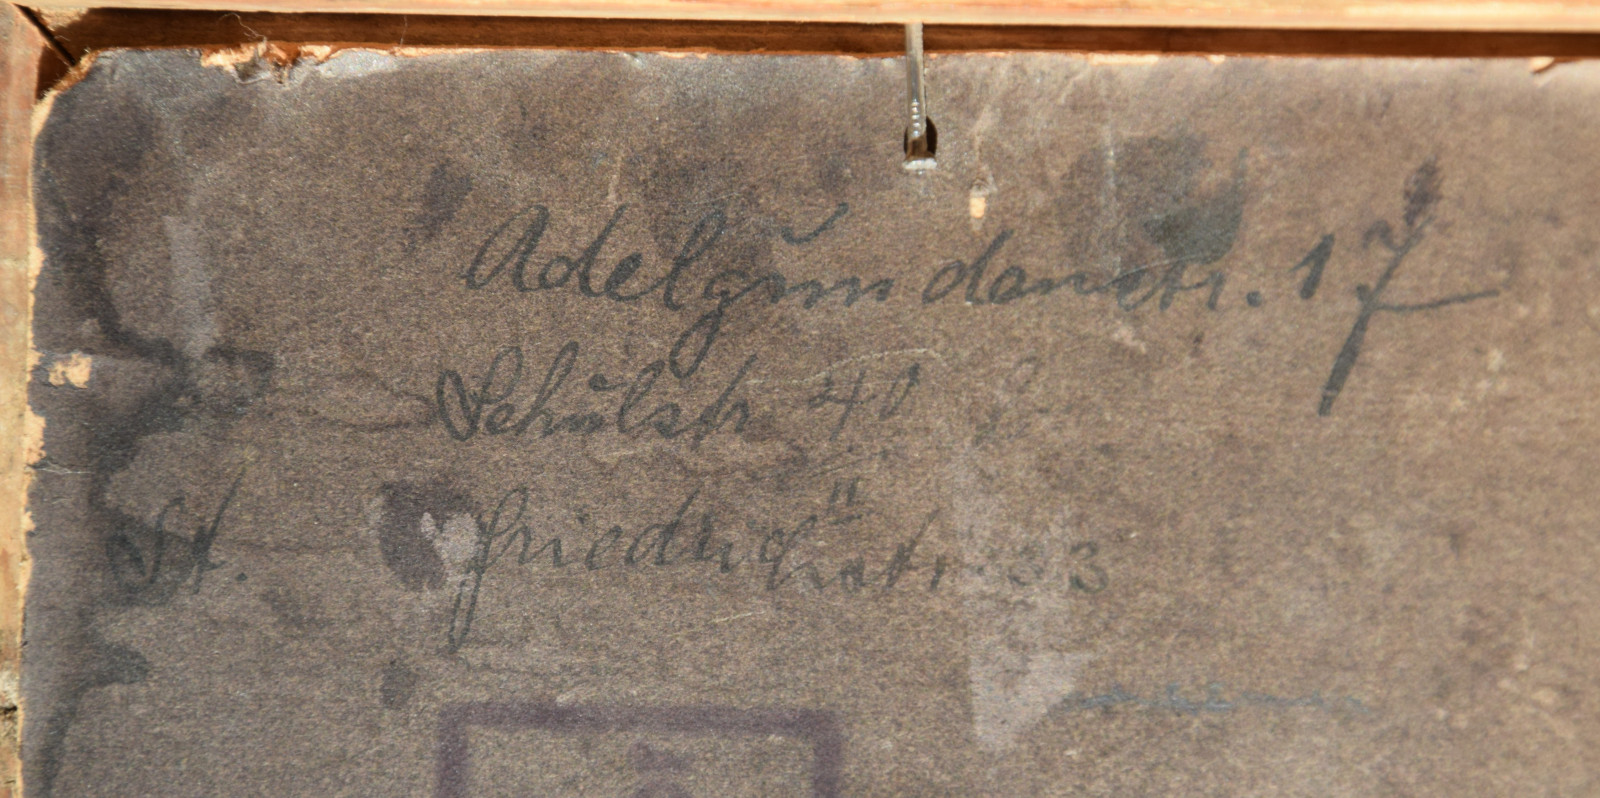 Adelgundenstr. 17
Schulstr 40
St. Friedrichstr. 33